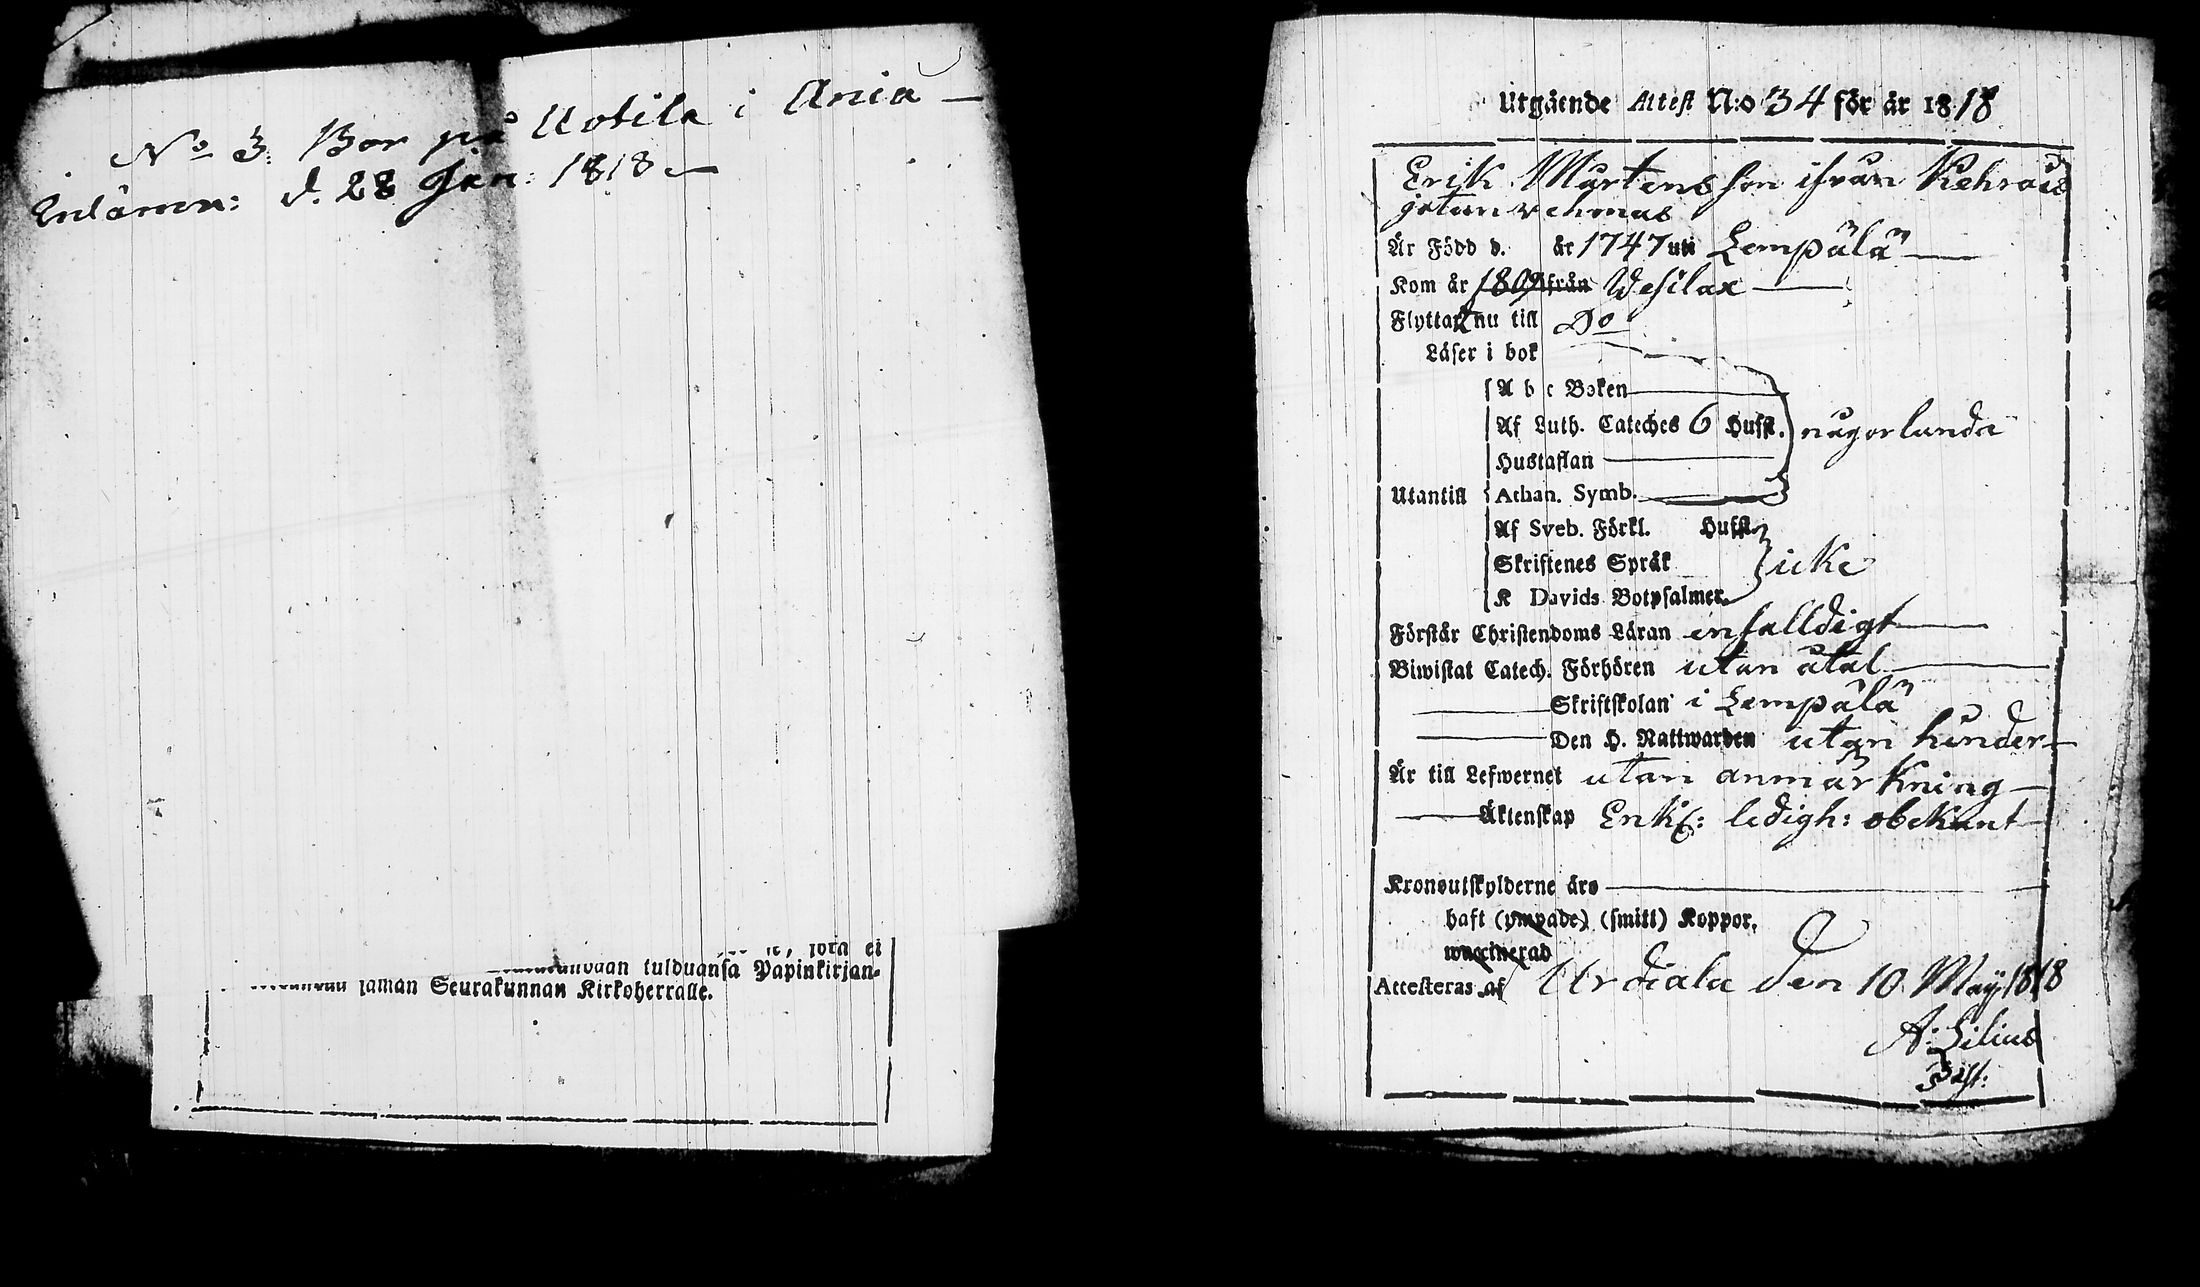 No 3. Bor på Uotila i Ania —
Inlämn: d. 28 Jan: 1818 —
tulduansa Papinkirjan-
saman Seurakunnan Kirkoherralle.
Utgående Attest N:o 34 för år 1818
Erik Mårtensson ifrån
Är Född d. år 1747 uti Lempälä
Kom år 1809 ifrån Wesilax
Flyttar nu till Do
Läser i bok
A b c Boken
Af Luth. Cateches 6 Hufst. någorlunda
Hustaflan
Utantill Athan. Symb.
Af Sveb. Förkl. Hufst.
Skriftenes Språk icke
K Davids Botpsalmer.
Förstår Christendoms Läran enfalldigt
Biwistat Catech. Förhören utan åtal
Skriftskolan i Lempälä
Den H. Nattwarden utan hinder
Är till Lefwernet utan anmärkning
Äktenskap Enkl: ledigh: obekant
Kronoutskylderne äro
haft (ympade) (smitt) Koppor.
waccinerad
Attesteras af Urdiala den 10 Maij 1818
A: Lilius
Past: